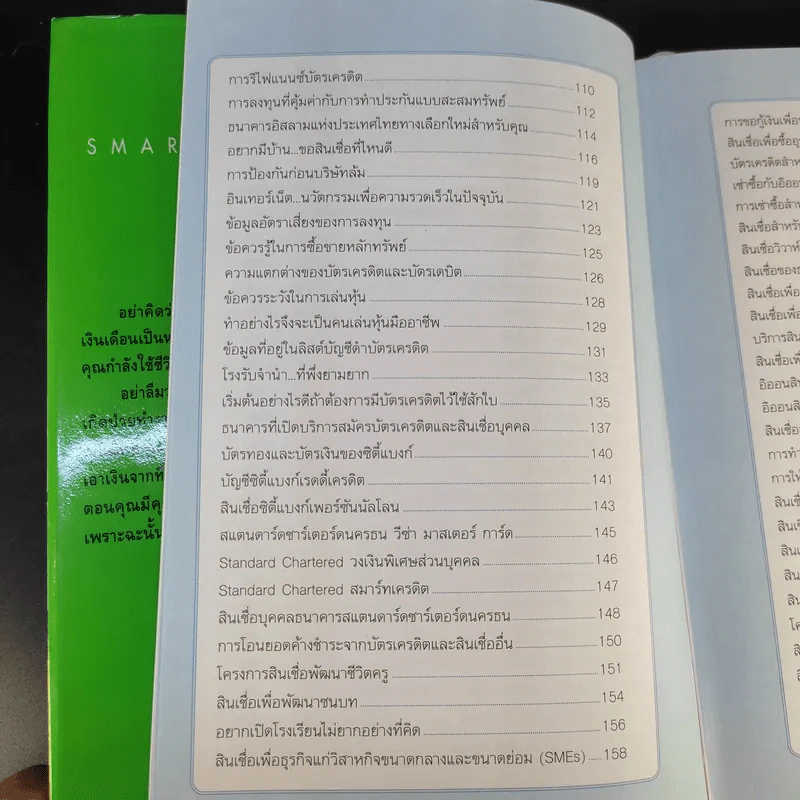 SMAR
อย่าคิดว่
เงินเดือนเป็นห
คุณกำลังใช้ชีวิ
อย่าลืมว
เอาเงินจากที่
ตอนคุณมีคุ
เพราะฉะนั้น
การรีไฟแนนซ์บัตรเครดิต 110
การลงทุนที่คุ้มค่ากับการทำประกันแบบสะสมทรัพย์ 112
ธนาคารอิสลามแห่งประเทศไทยทางเลือกใหม่สำหรับคุณ 114
อยากมีบ้าน...ขอสินเชื่อที่ไหนดี 116
การป้องกันก่อนบริษัทล้ม 119
อินเทอร์เน็ต...นวัตกรรมเพื่อความรวดเร็วในปัจจุบัน 121
ข้อมูลอัตราเสี่ยงของการลงทุน 123
ข้อควรรู้ในการซื้อขายหลักทรัพย์ 125
ความแตกต่างของบัตรเครดิตและบัตรเดบิต 126
ข้อควรระวังในการเล่นหุ้น 128
ทำอย่างไรจึงจะเป็นคนเล่นหุ้นมืออาชีพ 129
ข้อมูลที่อยู่ในลิสต์บัญชีดำบัตรเครดิต 131
โรงรับจำนำ...ที่พึ่งยามยาก 133
เริ่มต้นอย่างไรดีถ้าต้องการมีบัตรเครดิตไว้ใช้สักใบ 135
ธนาคารที่เปิดบริการสมัครบัตรเครดิตและสินเชื่อบุคคล 137
บัตรทองและบัตรเงินของซิตี้แบงก์ 140
บัญชีซิตี้แบงก์เรดดี้เครดิต 141
สินเชื่อซิตี้แบงก์เพอร์ซันนัลโลน 143
สแตนดาร์ดชาร์เตอร์ดนครธน วีซ่า มาสเตอร์ การ์ด 145
Standard Chartered วงเงินพิเศษส่วนบุคคล 146
Standard Chartered สมาร์ทเครดิต 147
สินเชื่อบุคคลธนาคารสแตนดาร์ดชาร์เตอร์ดนครธน 148
การโอนยอดค้างชำระจากบัตรเครดิตและสินเชื่ออื่น 150
โครงการสินเชื่อพัฒนาชีวิตครู 151
สินเชื่อเพื่อพัฒนาชนบท 154
อยากเปิดโรงเรียนไม่ยากอย่างที่คิด 156
สินเชื่อเพื่อธุรกิจแก่วิสาหกิจขนาดกลางและขนาดย่อม (SMEs) 158
การขอกู้เงินเพื่อน
สินเชื่อเพื่อซื้ออุ
บัตรเครดิตสำห
เช่าซื้อกับอิออน
การเช่าซื้อสำห
สินเชื่อสำหรั
สินเชื่อวิวาห์
สินเชื่อของธ
สินเชื่อเพื่อ
สินเชื่อเพื่อ
บริการสิน
สินเชื่อเพื่
อิออนสิ
อิออนสิ
สินเชื่อ
การทำ
การให้
สินเชื่
สินเชื่
สินเ
สินเ
สิน
โค